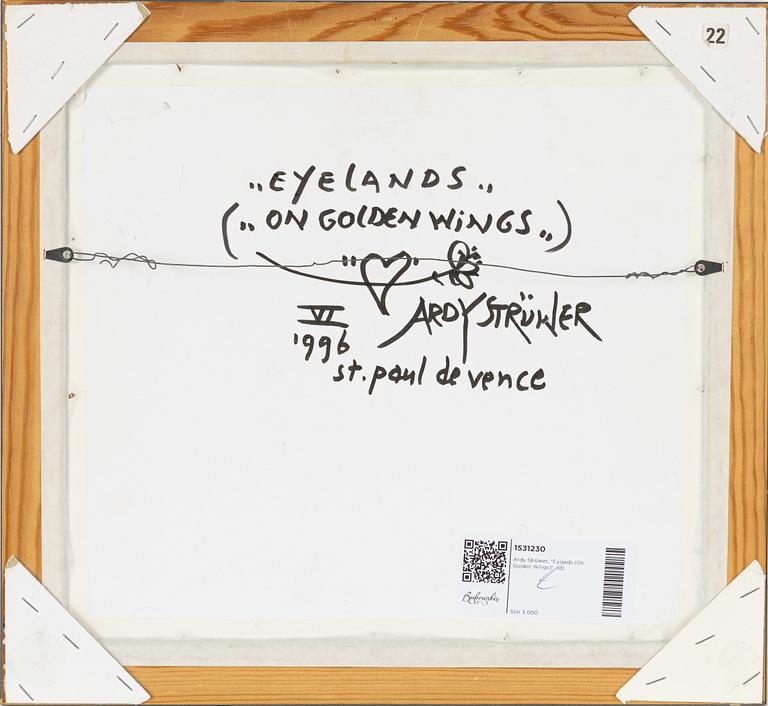 22
„EYELANDS„
(„ON GOLDEN WINGS„)
VI
1996
ARDY STRÜWER
st. paul de vence
1531230
Ardy Strüwer, "Eylands (On
Golden Wings)", (d)
Bukowskis
SEK 3 000